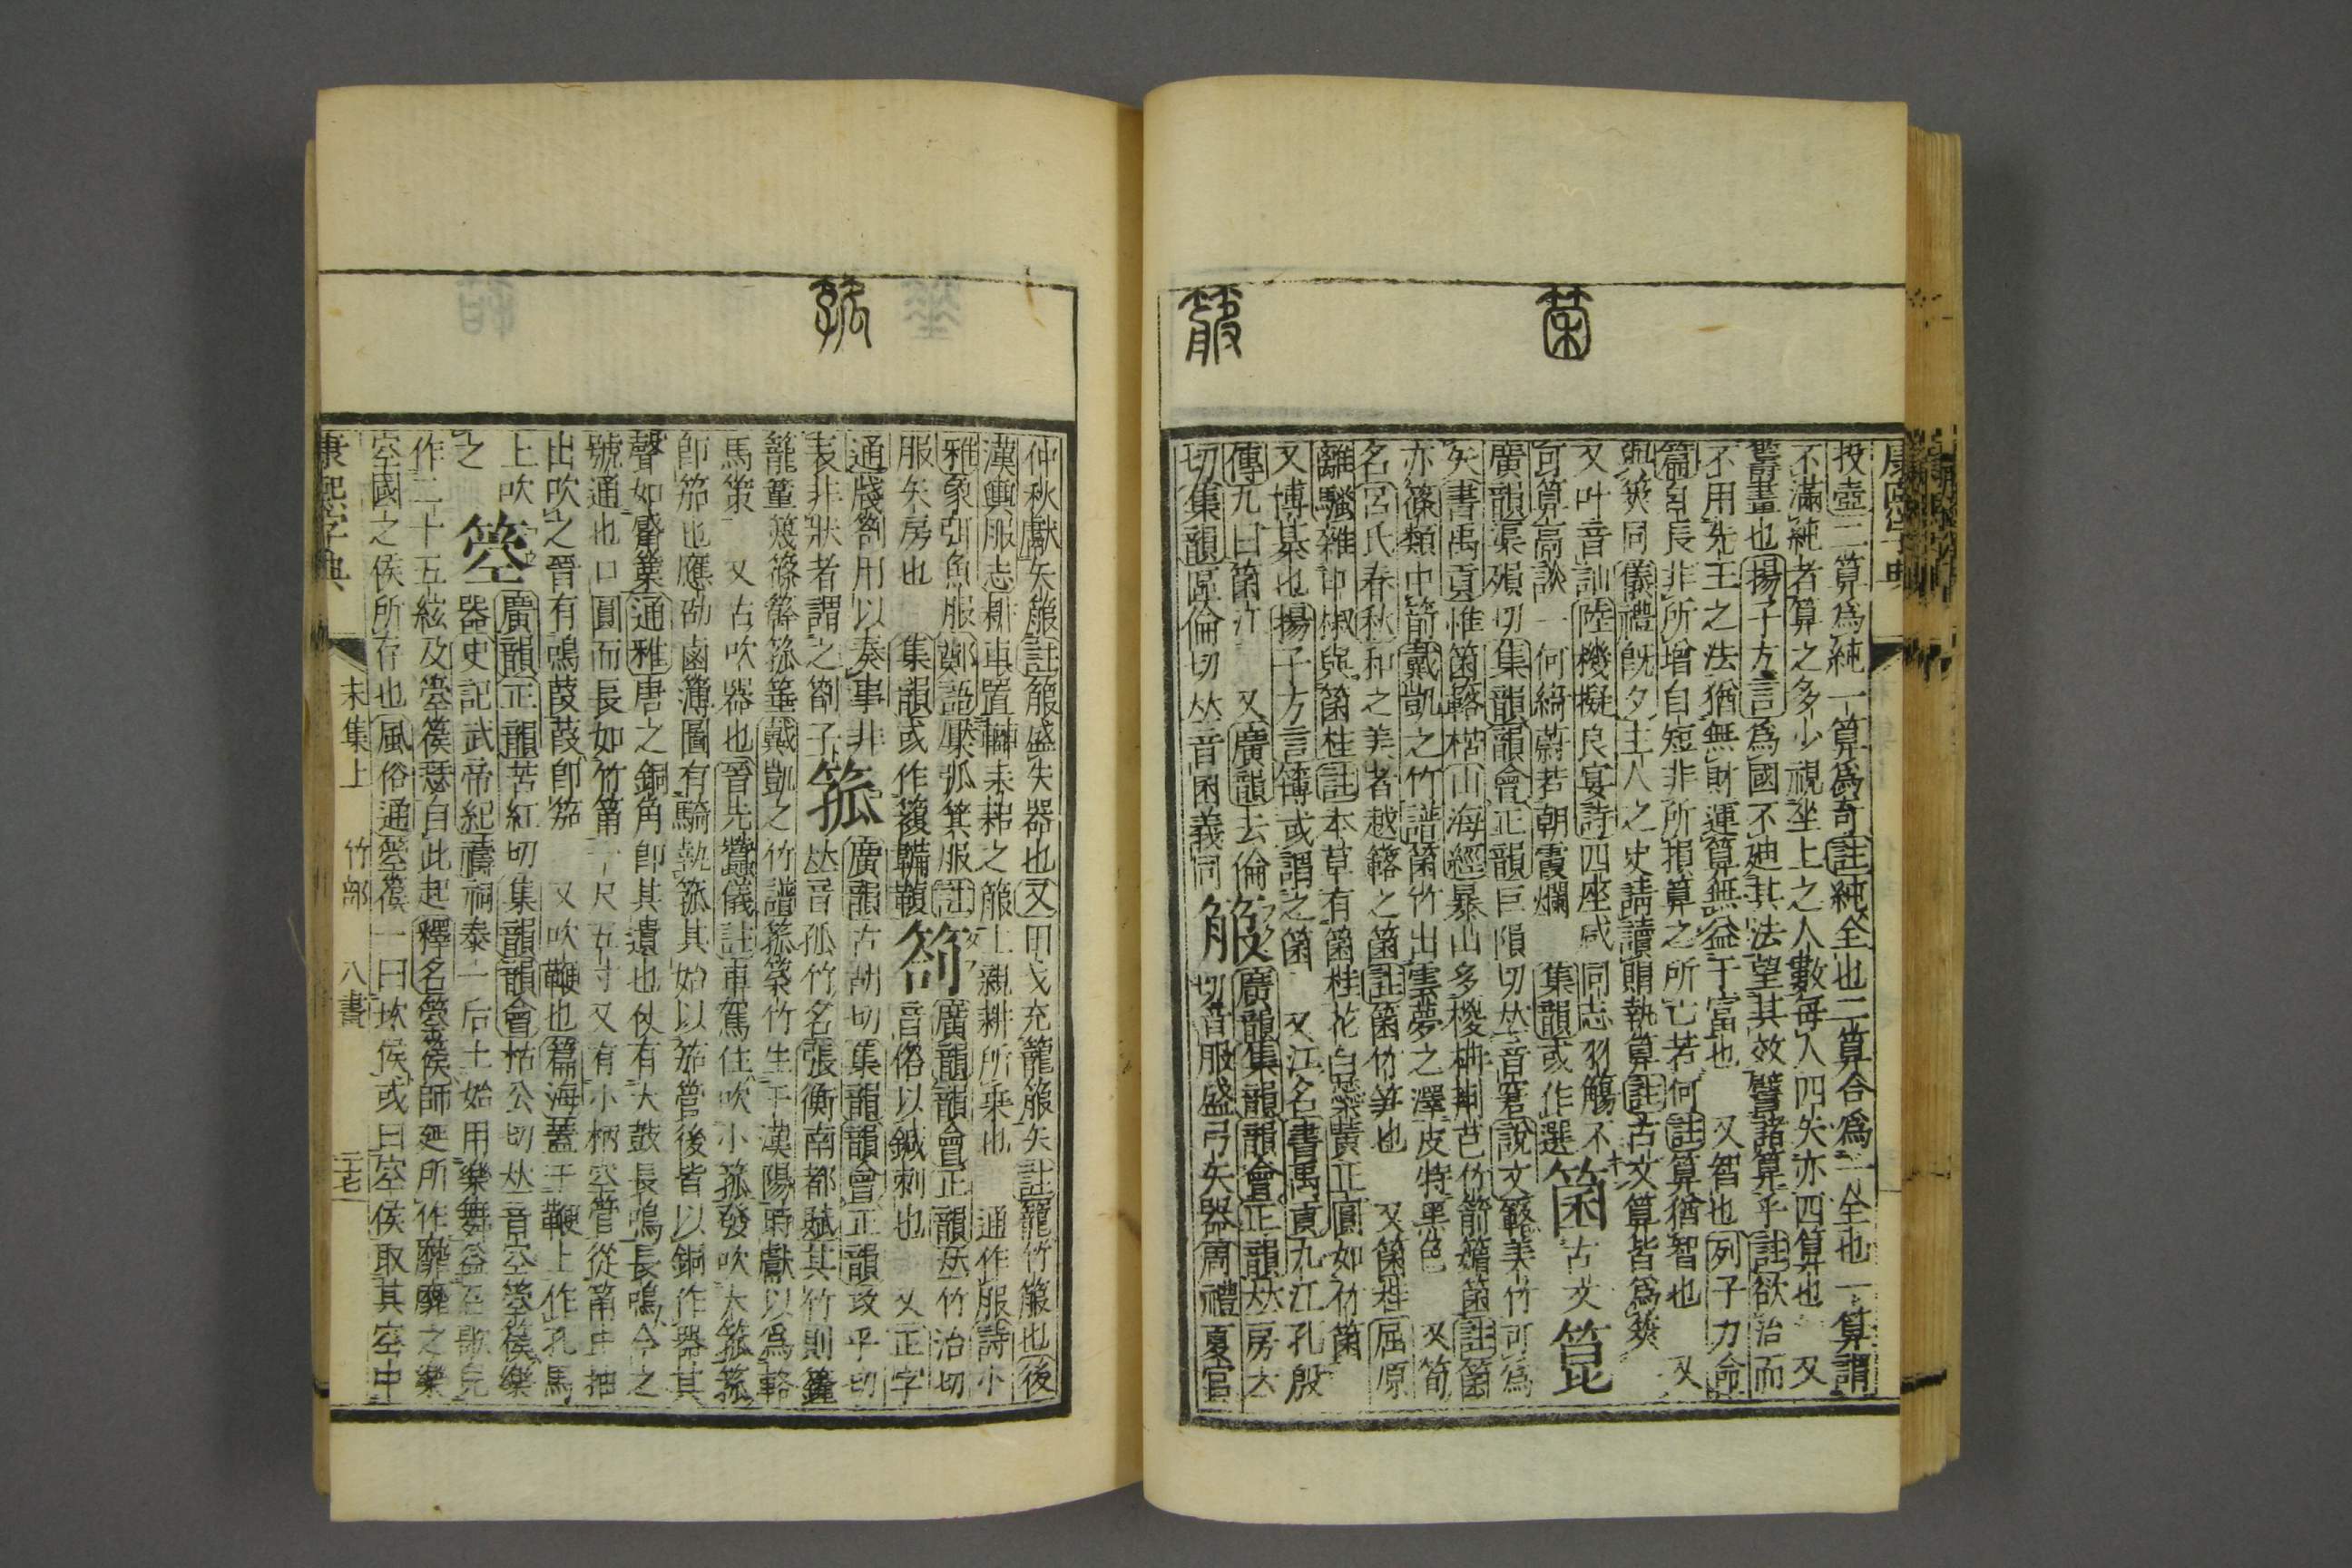 投壺二算爲純一算爲奇註純全也二算合爲一全也一算謂
不滿純者算之多少視坐上之人數每人四矢亦四算也 又
籌畫也揚子方言爲國不迪其法望其效譬諸算乎註欲治而
不用先王之法猶無財運算無益于富也 又智也列子力命
篇自長非所增自短非所損算之所亡若何註算猶智也 又
與筴同儀禮旣夕主人之史請讀賵執算註古文算皆爲筴
又叶音訕陸機擬良宴詩四座咸同志羽觴不
可算高談一何綺蔚若朝霞爛 集韻或作選
箘 古文 箟
廣韻渠殞切集韻韻會正韻巨隕切𠀤音窘說文簵美竹可爲
矢書禹貢惟箘簵楛山海經暴山多椶枏荆芑竹箭䉋箘註箘
亦篠類中箭戴凱之竹譜箘竹出雲夢之澤皮特黑色 又筍
名呂氏春秋和之美者越簵之箘註箘竹笋也 又箘桂屈原
離騷雜申椒與箘桂註本草有箘桂花白蘂黃正圓如竹箘
又博棊也揚子方言簙或謂之箘 又江名書禹貢九江孔殷
傳九曰箘江 又廣韻去倫
切集韻區倫切𠀤音囷義同
箙
廣韻集韻韻會正韻𠀤房六
切音服盛弓矢器周禮夏官
仲秋獻矢箙註箙盛矢器也又田弋充籠箙矢註籠竹箙也後
漢輿服志耕車置䡴耒耜之箙上親耕所乘也 通作服詩小
雅象弭魚服鄭語檿弧箕服註
服矢房也 集韻或作𥵜韛鞴
箚
廣韻韻會正韻𠀤竹洽切
音俗以鍼刺也 又正字
通牋箚用以奏事非
表非狀者謂之箚子
箛
廣韻古胡切集韻韻會正韻攻乎切
𠀤音孤竹名張衡南都賦其竹則籦
籠䈽篾篠簳箛箠戴凱之竹譜箛䇡竹生于漢陽時獻以爲輅
馬策 又古吹器也晉先蠶儀註車駕住吹小箛發吹大箛箛
卽笳也應劭鹵簿圖有騎執箛其始以笳管後皆以銅作器其
聲如觱篥通雅唐之銅角卽其遺也仗有大鼓長鳴長鳴今之
號通也口圓而長如竹筩一尺五寸又有小柄空管從筩中抽
出吹之晉有鳴葭葭卽笳 又吹鞭也篇海蓋于鞭上作孔馬
上吹
之
箜
廣韻正韻苦紅切集韻韻會枯公切𠀤音空箜篌樂
器史記武帝紀禱祠泰一后土始用樂舞益召歌兒
作二十五絃及箜篌瑟自此起釋名箜篌師延所作靡靡之樂
空國之侯所存也風俗通箜篌一曰坎侯或曰空侯取其空中
康熙字典 未集上 竹部 八畫 二十七